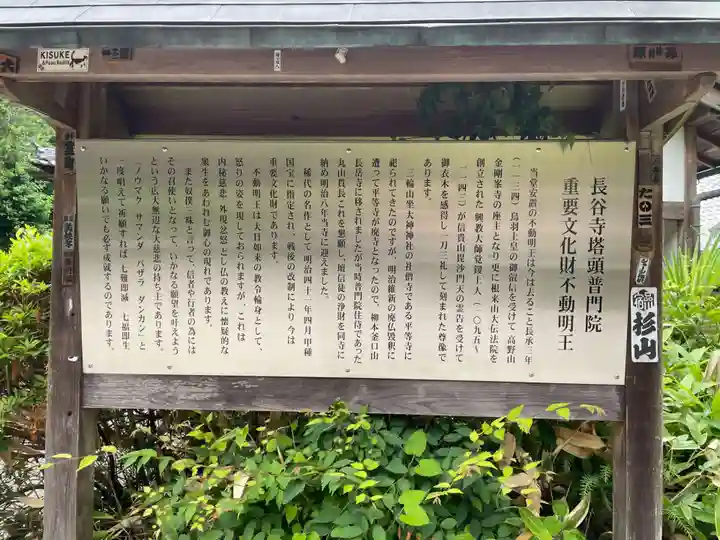 長谷寺塔頭普門院
重要文化財不動明王
当堂安置の不動明王は今は去ること長承三年
(一一三四)鳥羽上皇の御領信を受けて 高野山
金剛峯寺の座主となり更に根来山大伝法院を
創立された 興教大師覚鑁上人(一〇九五〜
一一四三)が信貴山毘沙門天の霊告を受けて
御衣木を感得し一刀三礼して刻まれた尊像で
あります。
三輪山坐大神神社の社僧寺である平等寺に
祀られてきたのですが、明治維新の廃仏毀釈に
遭って平等寺が廃寺となったので、柳本釜口山
長岳寺に移されましたが当時普門院住侍であった
丸山貫長これを懇願し、壇信徒の浄財を同寺に
納め明治八年当寺に迎えました。
稀代の名作として明治四十三年四月甲種
国宝に指定され、戦後の改制により今は
重要文化財であります。
不動明王は大日如来の教令輪身として、
怒りの姿を現しておられますが、これは
内秘慈悲 外現忿怒とし仏の教えに懐疑的な
衆生をあわれむ御心の現れであります。
また奴僕三昧と言って、信者や行者の為には
その召使いとなって、いかなる願望を叶えよう
という広大無辺な大慈悲の持ち主であります。
「ノウマク サマンダ バザラ ダンカン」と
一度唱えて祈願すれば 七難即滅 七福即生
いかなる願いでも必す成就するのであります。
KISUKE
杉山